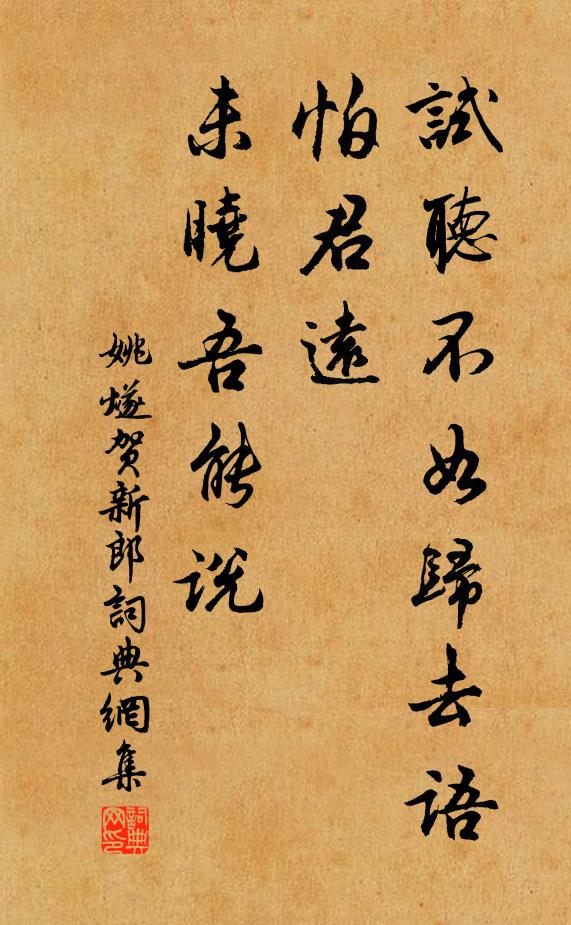 試聽不如歸去語
怕君遠
未曉吾能説
姚燧賀新郎詞典網集
詞典
网印